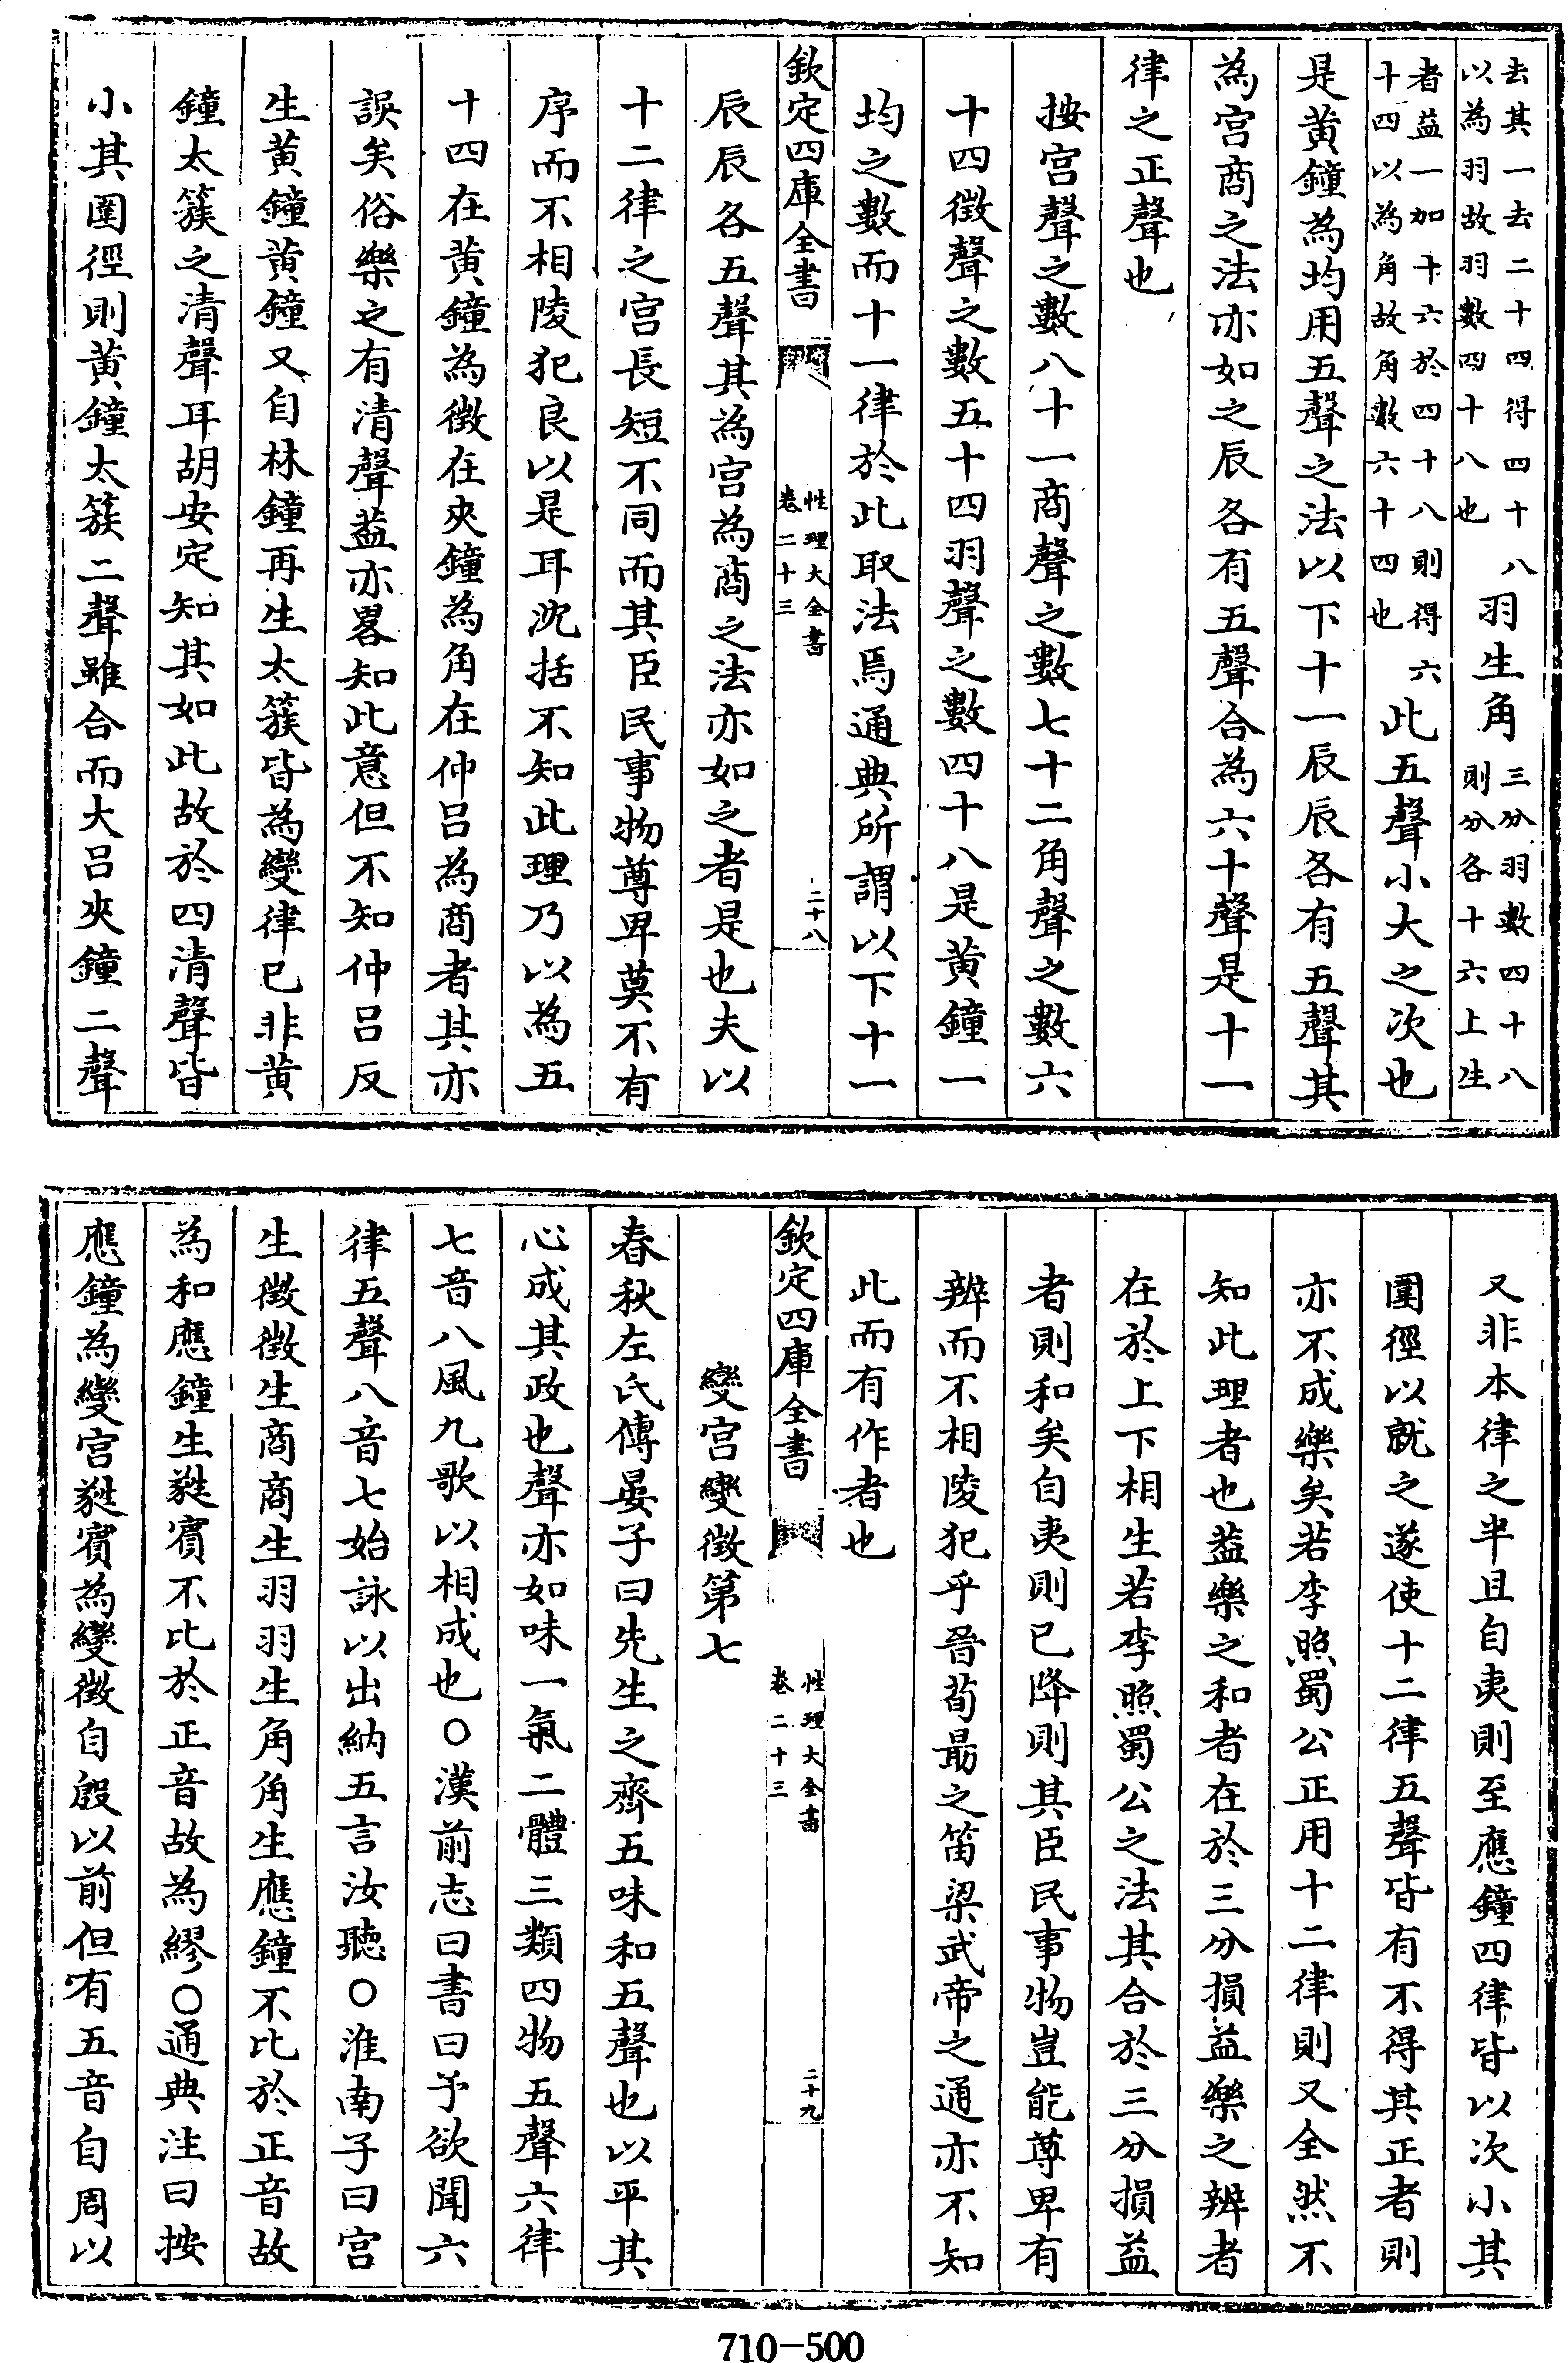 去其一去二十四得四十八
以為羽故羽數四十八也
羽生角
三分羽數四十八
則分各十六上生
者益一加十六於四十八則得六
十四以為角故角數六十四也
此五聲小大之次也
是黄鐘為均用五聲之法以下十一辰辰各有五聲其
為宫商之法亦如之辰各有五聲合為六十聲是十一
律之正聲也
按宫聲之數八十一商聲之數七十二角聲之數六
十四徴聲之數五十四羽聲之數四十八是黄鐘一
均之數而十一律於此取法焉通典所謂以下十一
欽定四庫全書
性理大全書
卷二十三
二十八
辰辰各五聲其為宫為商之法亦如之者是也夫以
十二律之宫長短不同而其臣民事物尊卑莫不有
序而不相陵犯良以是耳沈括不知此理乃以為五
十四在黄鐘為徴在夾鐘為角在仲吕為商者其亦
誤矣俗樂之有清聲葢亦畧知此意但不知仲吕反
生黄鐘黄鐘又自林鐘再生太簇皆為變律已非黄
鐘太簇之清聲耳胡安定知其如此故於四清聲皆
小其圍徑則黄鐘太簇二聲雖合而大吕夾鐘二聲
又非本律之半且自夷則至應鐘四律皆以次小其
圍徑以就之遂使十二律五聲皆有不得其正者則
亦不成樂矣若李照蜀公正用十二律則又全然不
知此理者也葢樂之和者在於三分損益樂之辨者
在於上下相生若李照蜀公之法其合於三分損益
者則和矣自夷則已降則其臣民事物豈能尊卑有
辨而不相陵犯乎晉荀勗之笛梁武帝之通亦不知
此而有作者也
欽定四庫全書
性理大全書
卷二十三
二十九
變宫變徴第七
春秋左氏傳晏子曰先生之齊五味和五聲也以平其
心成其政也聲亦如味一氣二體三類四物五聲六律
七音八風九歌以相成也○漢前志曰書曰予欲聞六
律五聲八音七始詠以出納五言汝聽○淮南子曰宫
生徴徴生商商生羽羽生角角生應鐘不比於正音故
為和應鐘生蕤賓不比於正音故為繆○通典注曰按
應鐘為變宫蕤賓為變徴自殷以前但有五音自周以
710-500